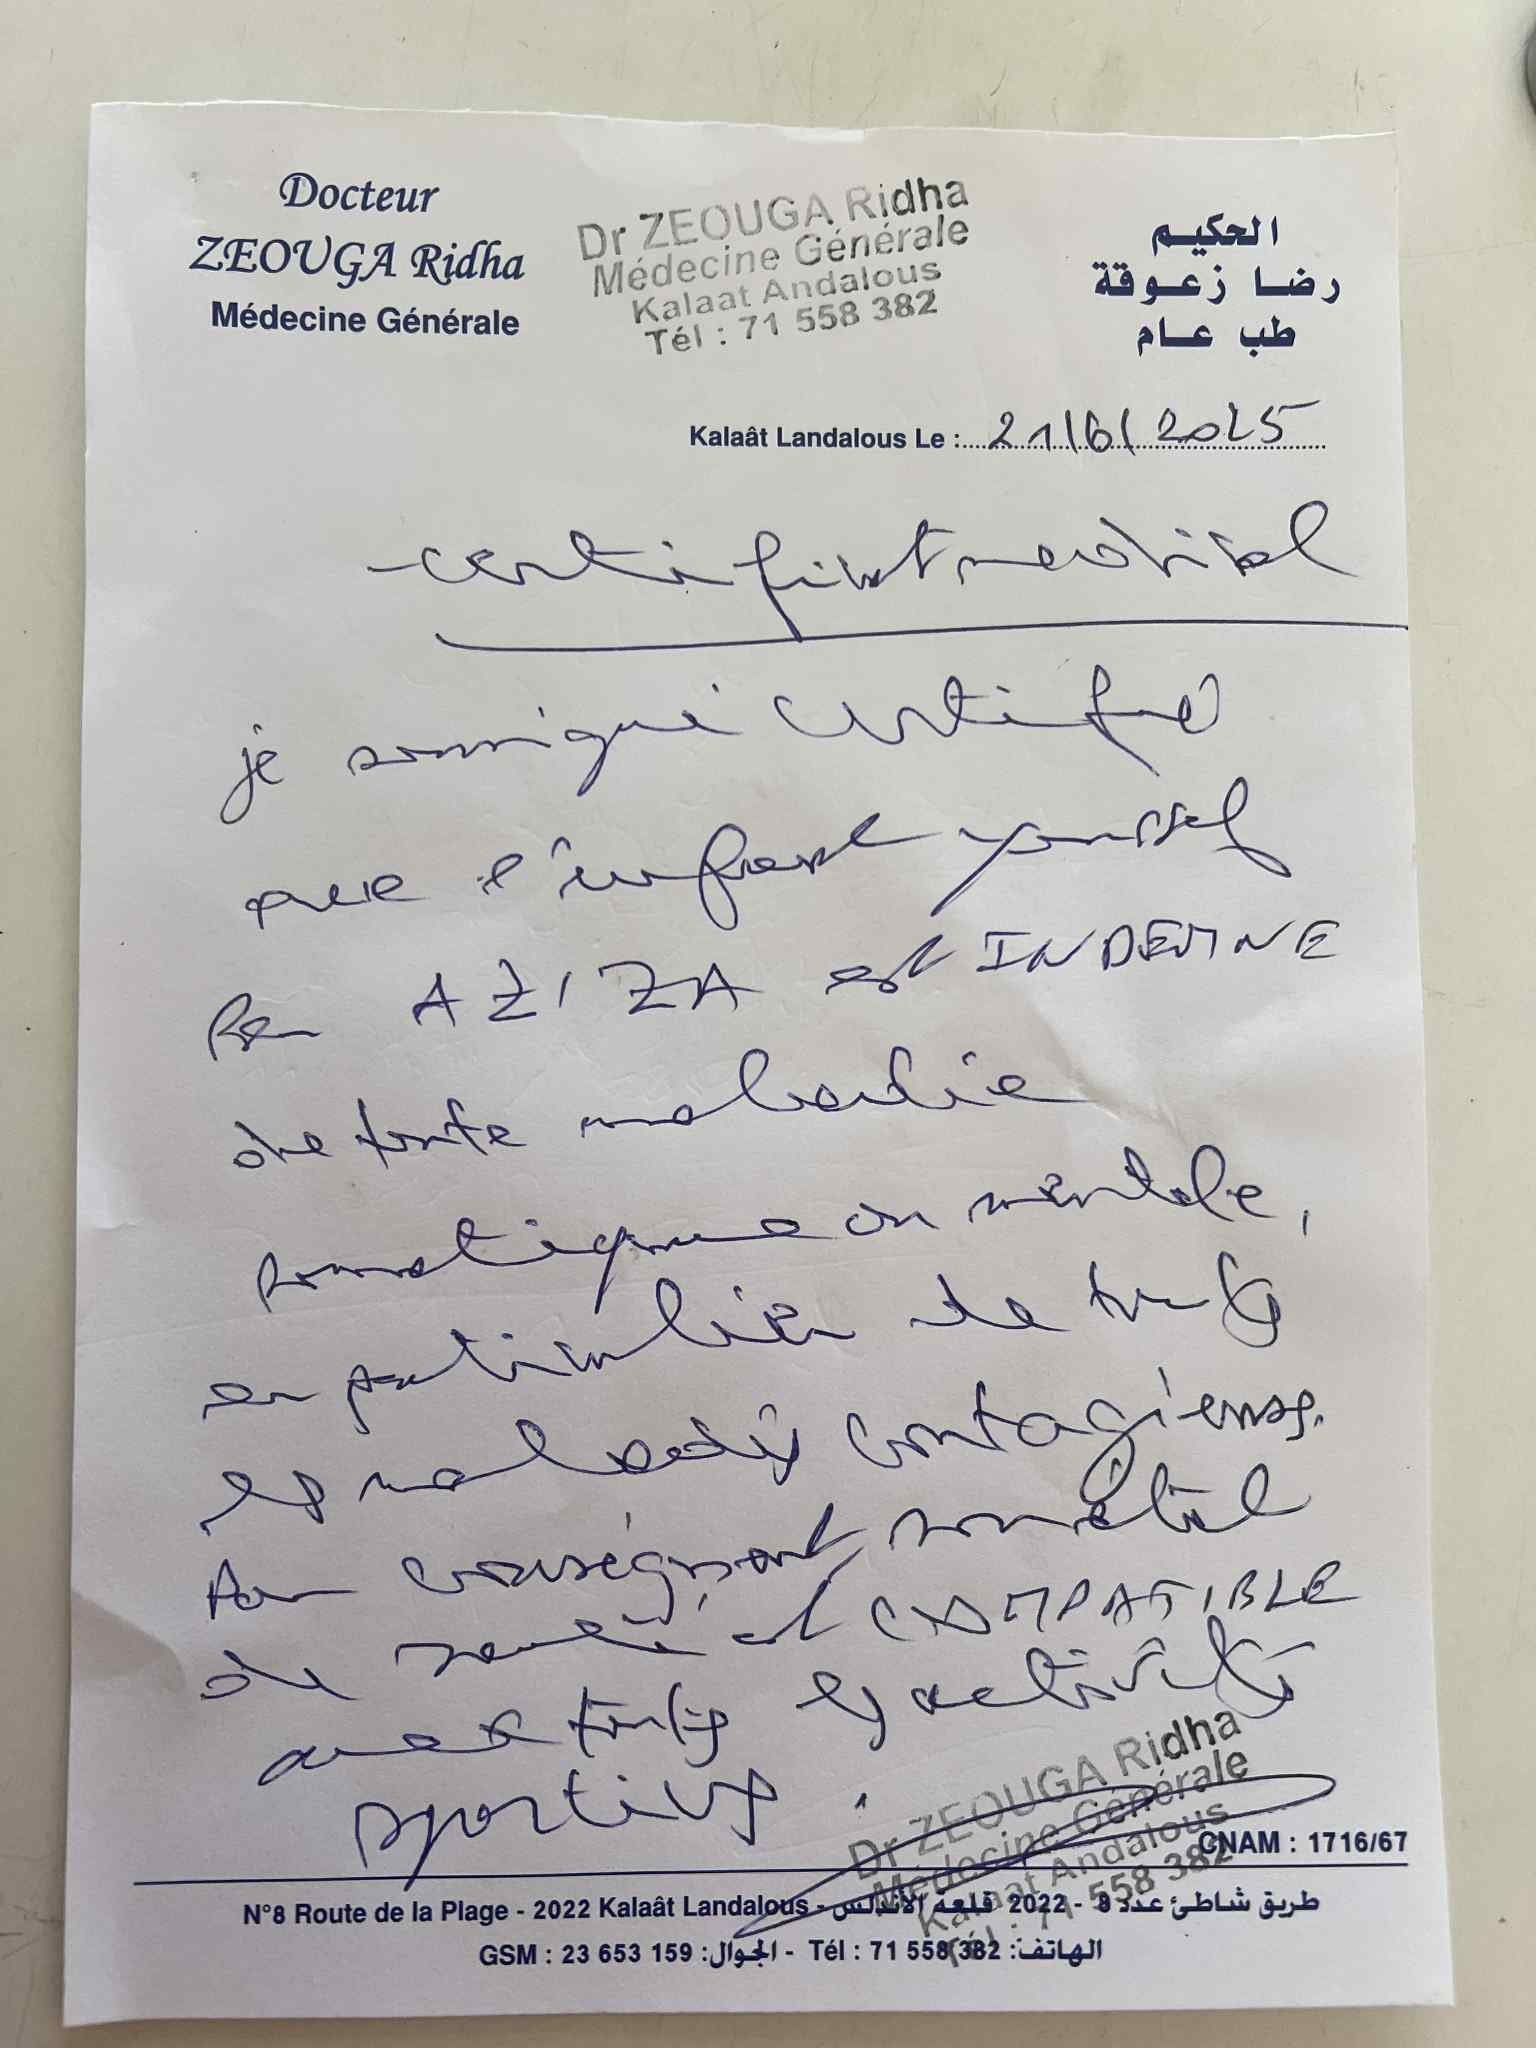 Docteur
ZEOUGA Ridha
Médecine Générale
Dr ZEOUGA Ridha
Médecine Générale
Kalaat Andalous
Tél : 71 558 382
الحكيم
رضا زعوقة
طب عام
Kalaât Landalous Le : 21/6/2025
certificat medical
je soussigné certifie
que l'enfant youssef
Ben AZIZA est INDEMNE
de toute maladie
somatique ou mentale,
en particulier de toutes
les maladies contagieuses.
Par conséquent, son état
de santé est COMPATIBLE
avec toutes les activités
sportives.
Dr ZEOUGA Ridha
Médecine Générale
Kalaat Andalous
Tél : 71 558 382
CNAM : 1716/67
N°8 Route de la Plage - 2022 Kalaât Landalous - طريق شاطئ عدد 8 - 2022 قلعة الأندلس
GSM : 23 653 159 :الجوال - Tél : 71 558 382 :الهاتف